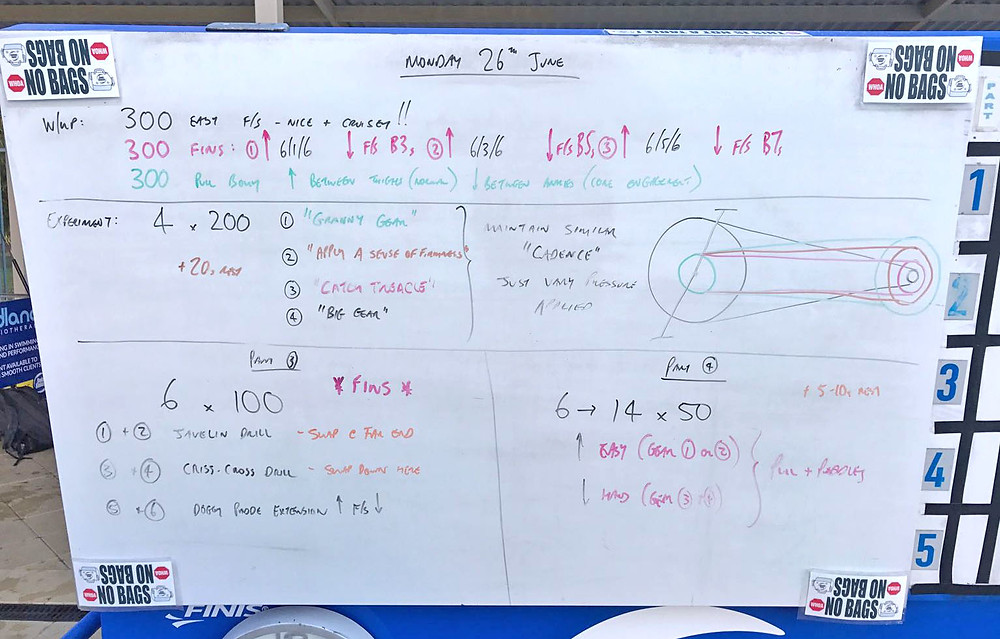 NO BAGS
NO BAGS
WHOA
WHOA
NO BAGS
NO BAGS
WHOA
WHOA
MONDAY 26TH JUNE
W/UP: 300 EASY F/S - NICE + CRUISEY!!
300 FINS: ① ↑ 6/1/6 ↓ F/S B3, ② ↑ 6/3/6 ↓ F/S B5, ③ ↑ 6/5/6 ↓ F/S B7,
300 PULL BUOY ↑ BETWEEN THIGHS (NORMAL) ↓ BETWEEN ANKLES (CORE ENGAGEMENT)
EXPERIMENT: 4 x 200
+20s REST
① "GRANNY GEAR"
② "APPLY A SENSE OF FIRMNESS"
③ "CATCH TREACLE"
④ "BIG GEAR"
MAINTAIN SIMILAR
"CADENCE"
JUST VARY PRESSURE
APPLIED
PART ③
6 x 100 * FINS *
① + ② JAVELIN DRILL - SWAP @ FAR END
③ + ④ CRISS-CROSS DRILL - SWAP DOWN HERE
⑤ + ⑥ DOGGY PADDLE EXTENSION ↑ F/S ↓
PART ④
6 → 14 x 50
+ 5-10s REST
↑ EASY (GEAR ① OR ②)
↓ HARD (GEAR ③ + 4)
PULL + PADDLES
PART
1
2
3
4
5
NO BAGS
NO BAGS
WHOA
WHOA
NO BAGS
NO BAGS
WHOA
WHOA
FINIS